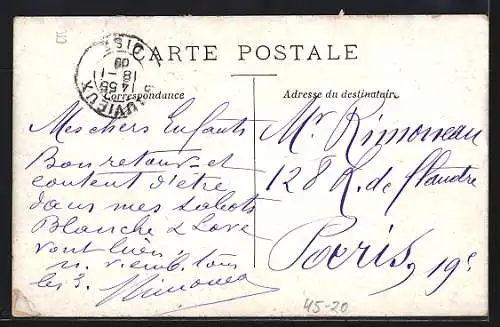 E
CARTE POSTALE
OISE
14 55
18 -1
09
Correspondance
Adresse du destinataire
Mes chers Enfants
Bon retour et
content d'etre
dans mes sabots
Blanche & Lore
vont bien
n. v. emb. tous
les 3. Rimoneau
Mr Rimoneau
128 R. de Flandre
Paris, 19e
45-20